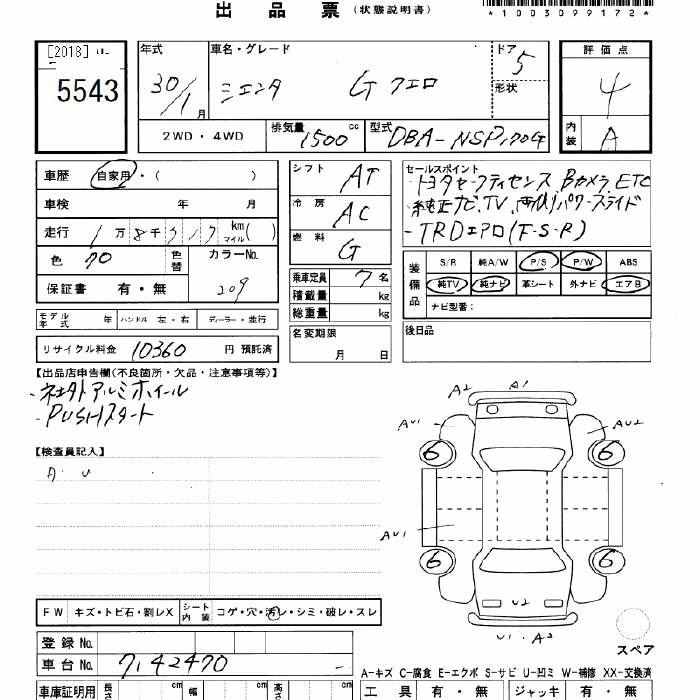 出 品 票 (状態説明書)
*1003099172*
[2018]
5543
年式 30/1月
車名・グレード シエンタ G クエロ
ドア 5
形状
評価点 4
内装 A
2WD・4WD
排気量 1500 cc
型式 DBA-NSP170G
車歴 自家用・( )
車検 年 月
走行 1万 8千 km マイル ( )
色 クロ 色替
カラーNo. 209
保証書 有・無
シフト AT
冷房 AC
燃料 G
乗車定員 7名
積載量 kg
総重量 kg
名変期限 月 日
セールスポイント
・トヨタセーフティセンス、Bカメラ、ETC
・純正ナビ、TV、両側パワースライド
・TRDエアロ(F-S-R)
装備品
S/R 純A/W P/S P/W ABS
純TV 純ナビ 革シート 外ナビ エアB
ナビ型番:
後日品
モデル年式 年 ハンドル 左・右 ディーラー・並行
リサイクル料金 10360 円 預託済
【出品店申告欄(不良箇所・欠品・注意事項等)】
・社外アルミホイール
・PUSHスタート
【検査員記入】
A・U
A2 A1
AU1 AU2
6 6
AU1
6 6
U2
U1・A2
スペア
FW キズ・トビ石・割レX
シート内装 コゲ・穴・汚レ・シミ・破レ・スレ
登録 No.
車台 No. 7142470
A-キズ C-腐食 E-エクボ S-サビ U-凹ミ W-補修 XX-交換済
車庫証明用 長さ cm 幅 cm 高さ cm
工具 有・無 ジャッキ 有・無